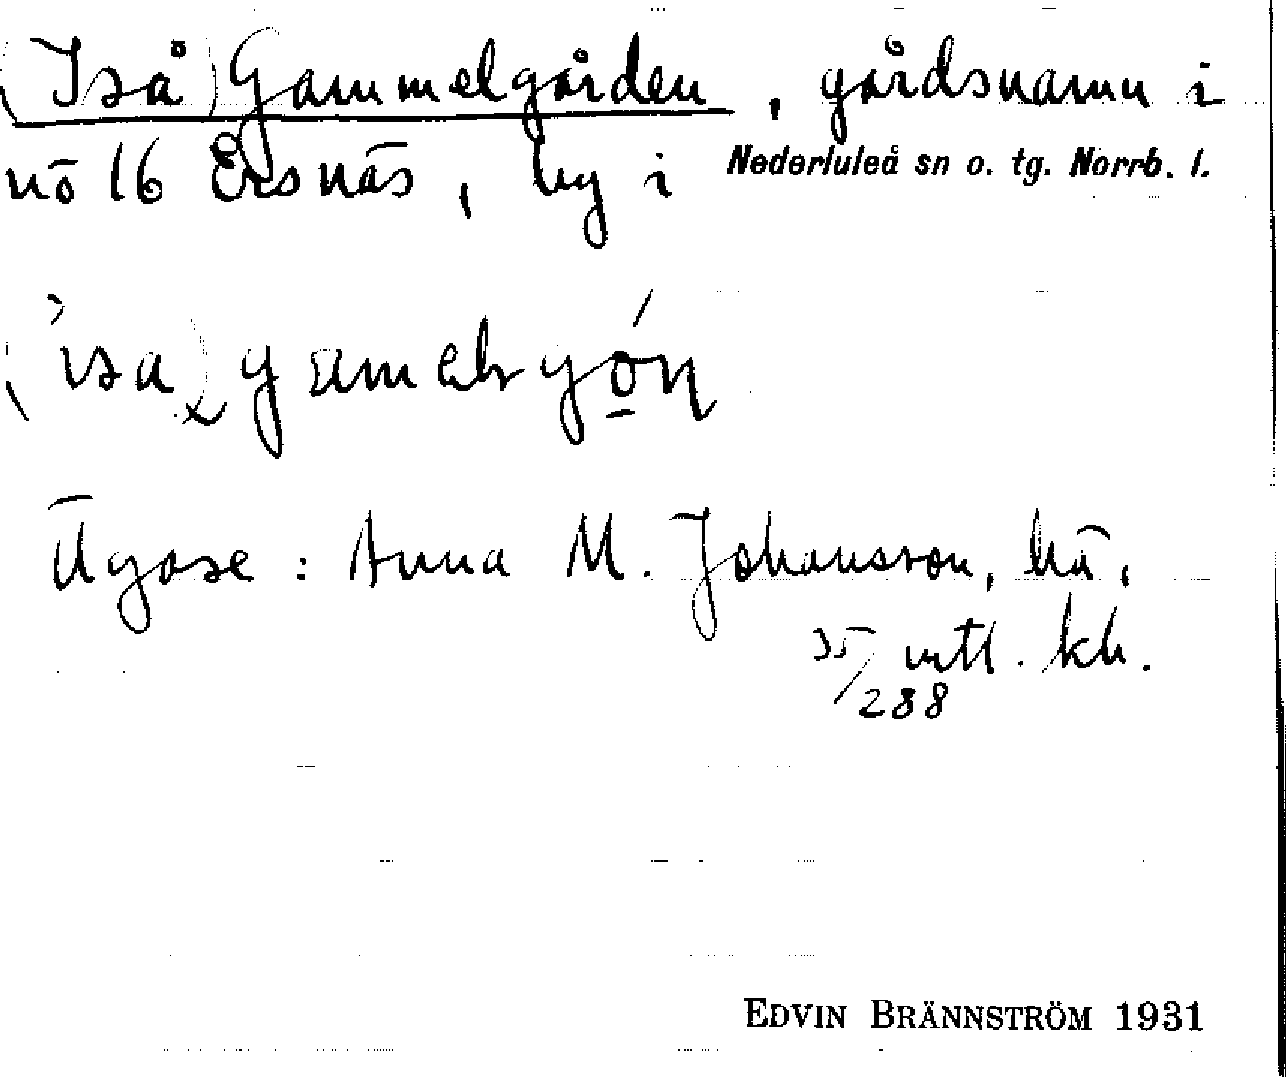 (Iså) Gammelgården, gårdsnamn i
nö 16 Ersnäs, by i Nederluleå sn o. tg. Norrb. l.
Ägare: Anna M. Johansson, hä,
35/288 mtl. kh.
EDVIN BRÄNNSTRÖM 1931